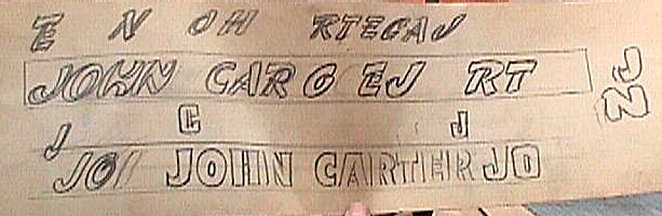 E N OH RTEGAJ
JOHN CARO EJ RT
J C J
JOH JOHN CARTIER JO
NJ